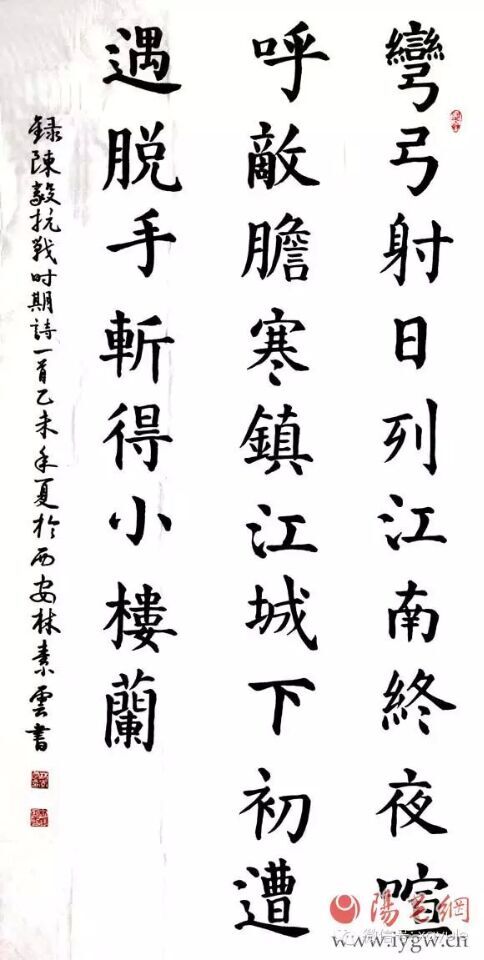 彎弓射日列江南終夜喧
呼敵膽寒鎮江城下初遭
遇脱手斬得小樓蘭
録陳毅抗戰时期詩一首乙未年夏於西安林素雲書
陽光網
www.iygw.cn